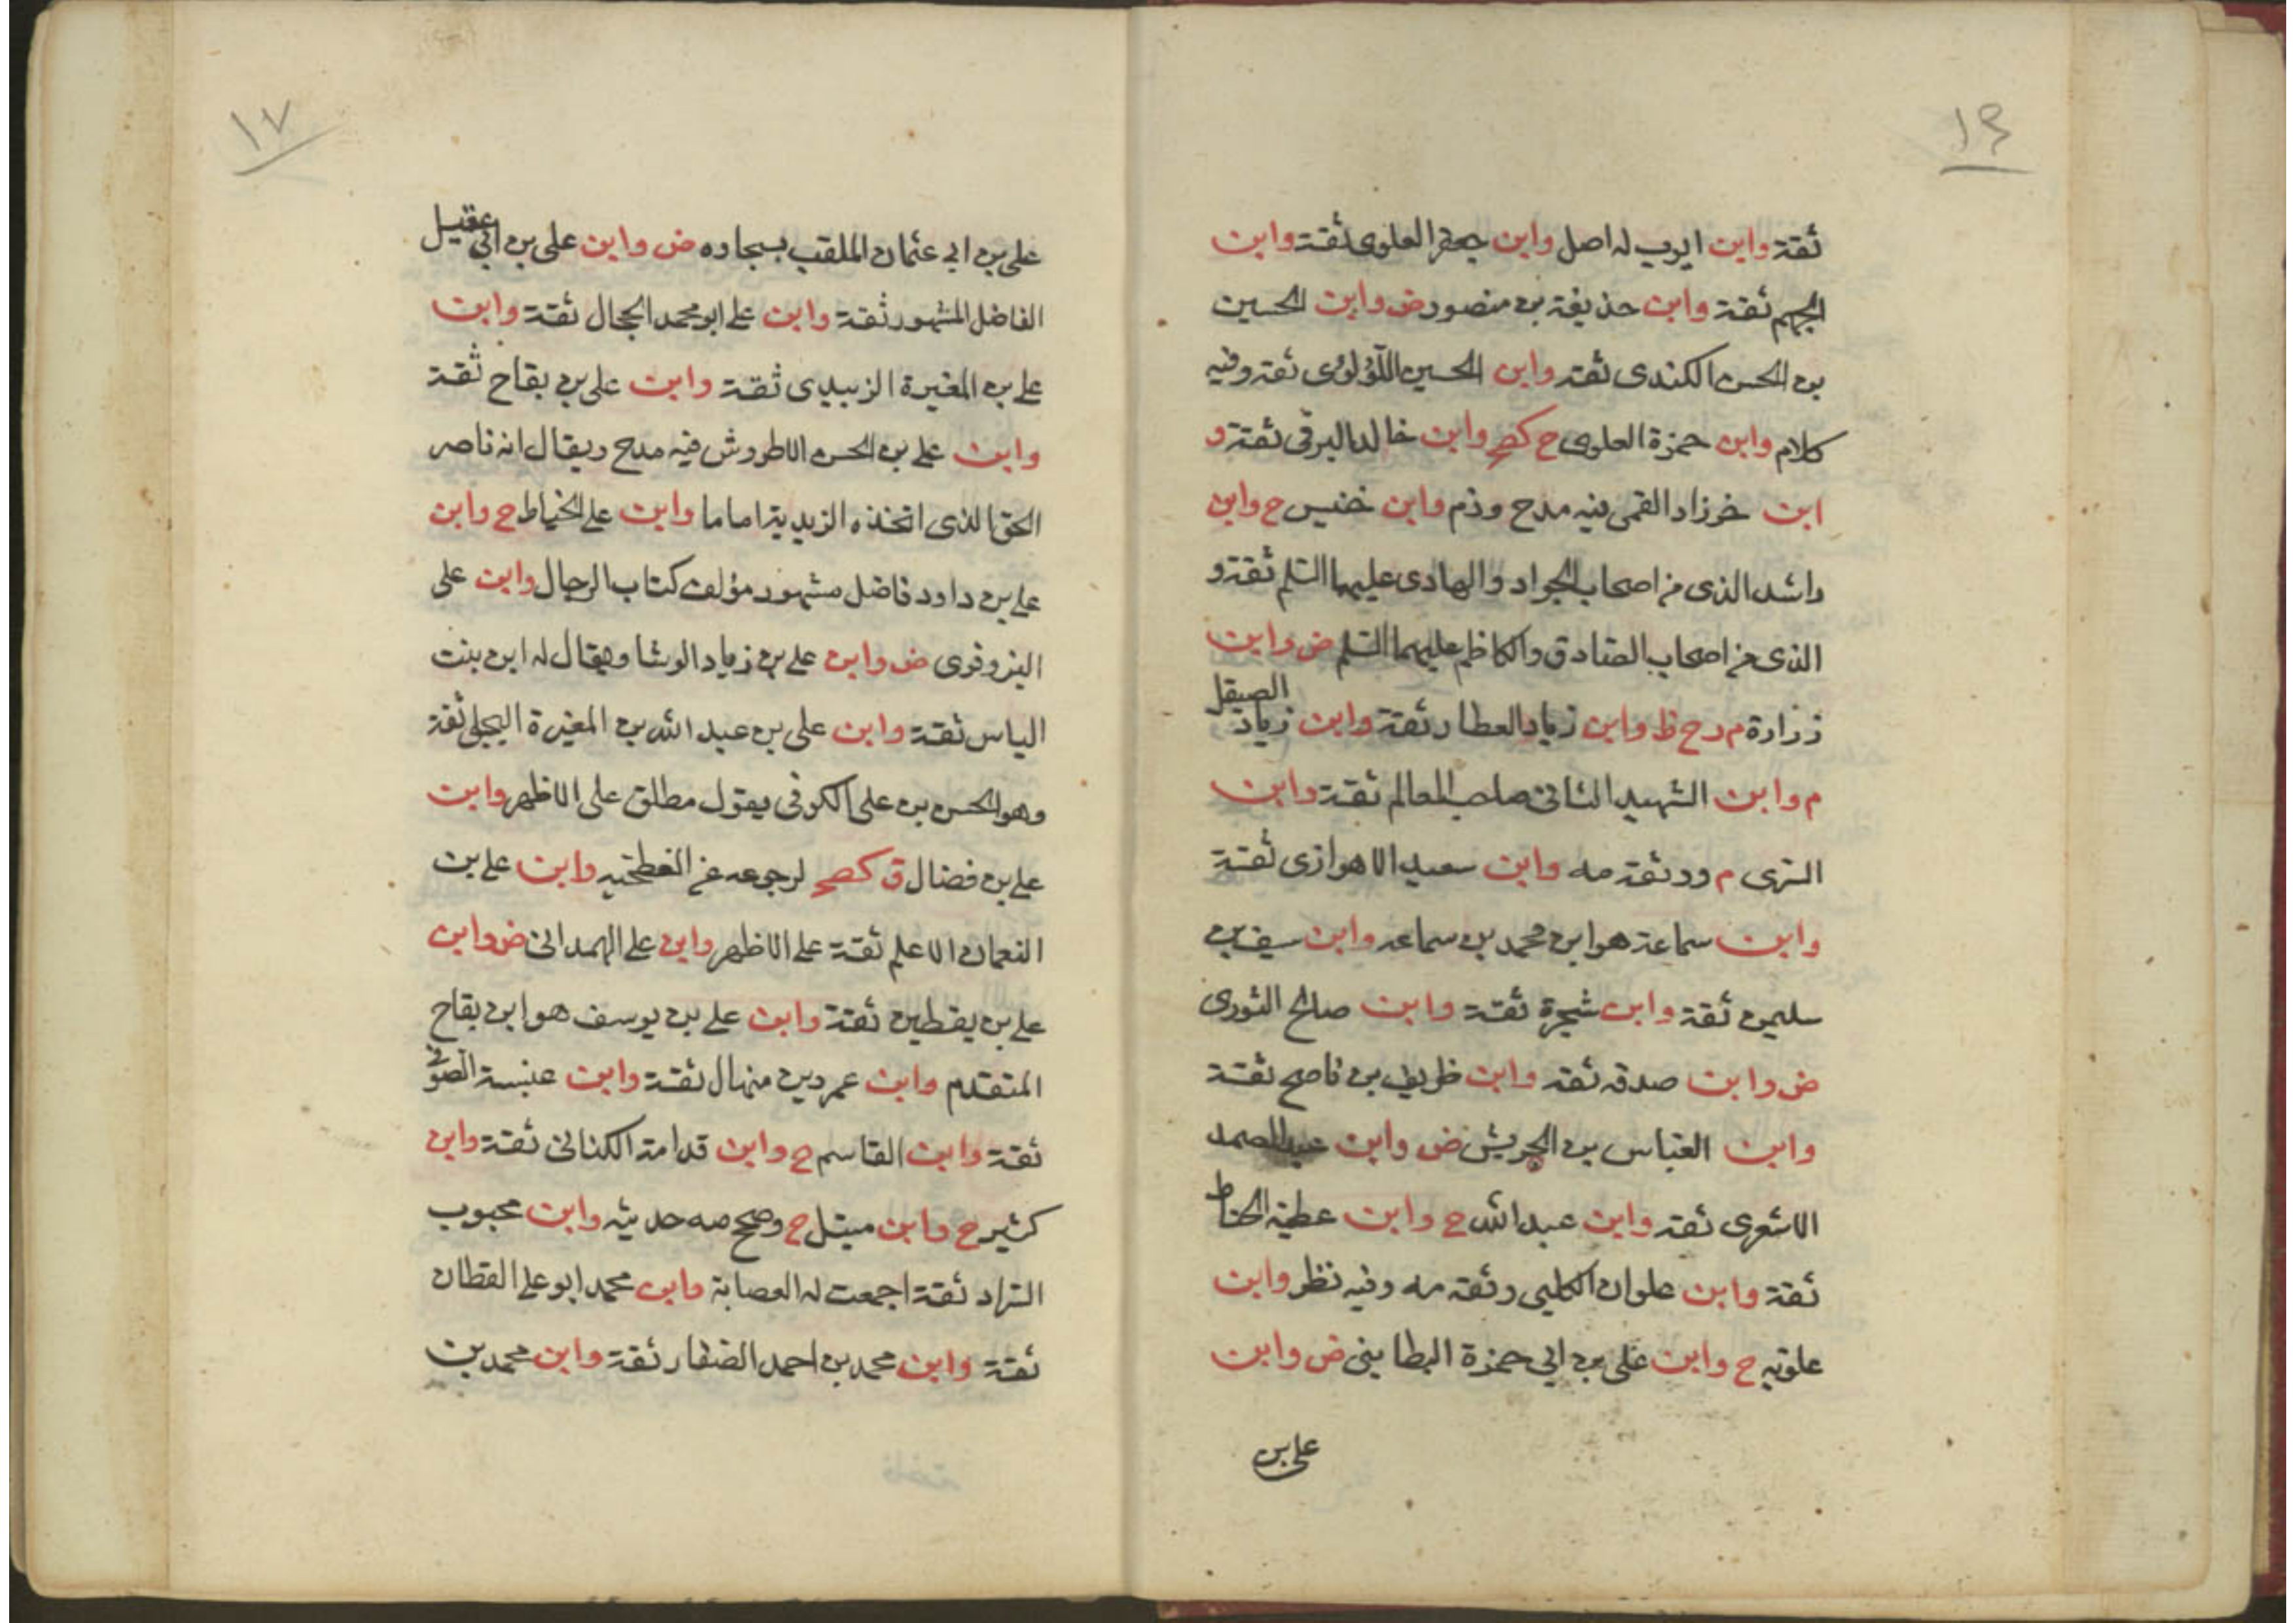 ١٦
ثقة وابن ايوب له اصل وابن جعفر العلوى ثقة وابن
الجهم ثقة وابن حذيفة بن منصور ض وابن الحسين
بن الحسن الكندى ثقة وابن الحسين اللؤلؤى ثقة وفيه
كلام وابن حمزة العلوى ح كصح وابن خالد البرقى ثقة و
ابن خرزاد القمى فيه مدح وذم وابن خنيس ح وابن
راشد الذى من اصحاب الجواد والهادى عليهما السلم ثقة و
الذى من اصحاب الصادق والكاظم عليهما السلم ض وابن
زرارة م دح ظ وابن زياد العطار ثقة وابن زياد الصيقل
م وابن الشهيد الثانى صاحب المعالم ثقة وابن
السرى م ووثقة مه وابن سعيد الاهوازى ثقة
وابن سماعة هو ابن محمد بن سماعه وابن سيف بن
سليمن ثقة وابن شجرة ثقة وابن صالح الثورى
ض وابن صدقه ثقه وابن ظريف بن ناصح ثقة
وابن العباس بن الحريش ض وابن عبد الصمد
الاشعرى ثقه وابن عبد الله ح وابن عطيه الحناط
ثقة وابن علوان الكلبى وثقه مه وفيه نظر وابن
علويه ح وابن على بن ابى حمزة البطاينى ض وابن
على بن
١٧
على بن ابى عثمان الملقب بسجاده ض وابن على بن ابى عقيل
الفاضل المشهور ثقة وابن على ابو محمد الحجال ثقة وابن
على بن المغيرة الزبيدى ثقة وابن على بن بقاح ثقة
وابن على بن الحسن الاطروش فيه مدح ويقال انه ناصر
الحق الذى اتخذه الزيدية اماما وابن على الخياط ح وابن
على بن داود فاضل مشهور مؤلف كتاب الرجال وابن على
البزوفرى ض وابن على بن زياد الوشا ويقال له ابن بنت
الياس ثقة وابن على بن عبد الله بن المغيرة البجلى ثقة
وهو الحسن بن على الكوفى يقول مطلق على الاظهر وابن
على بن فضال ق كصح لرجوعه عن الفطحيه وابن على بن
النعمان الاعلم ثقة على الاظهر وابن على الهمدانى ض وابن
على بن يقطين ثقة وابن على بن يوسف هو ابن بقاح
المتقدم وابن عمرو بن منهال ثقة وابن عنبسة الصوفى
ثقة وابن القاسم ح وابن قدامة الكنانى ثقة وابن
كثير ح وابن متيل ح وصحح مه حديثه وابن محبوب
السراد ثقة اجمعت له العصابة وابن محمد ابو على القطان
ثقة وابن محمد بن احمد الصفار ثقة وابن محمد بن